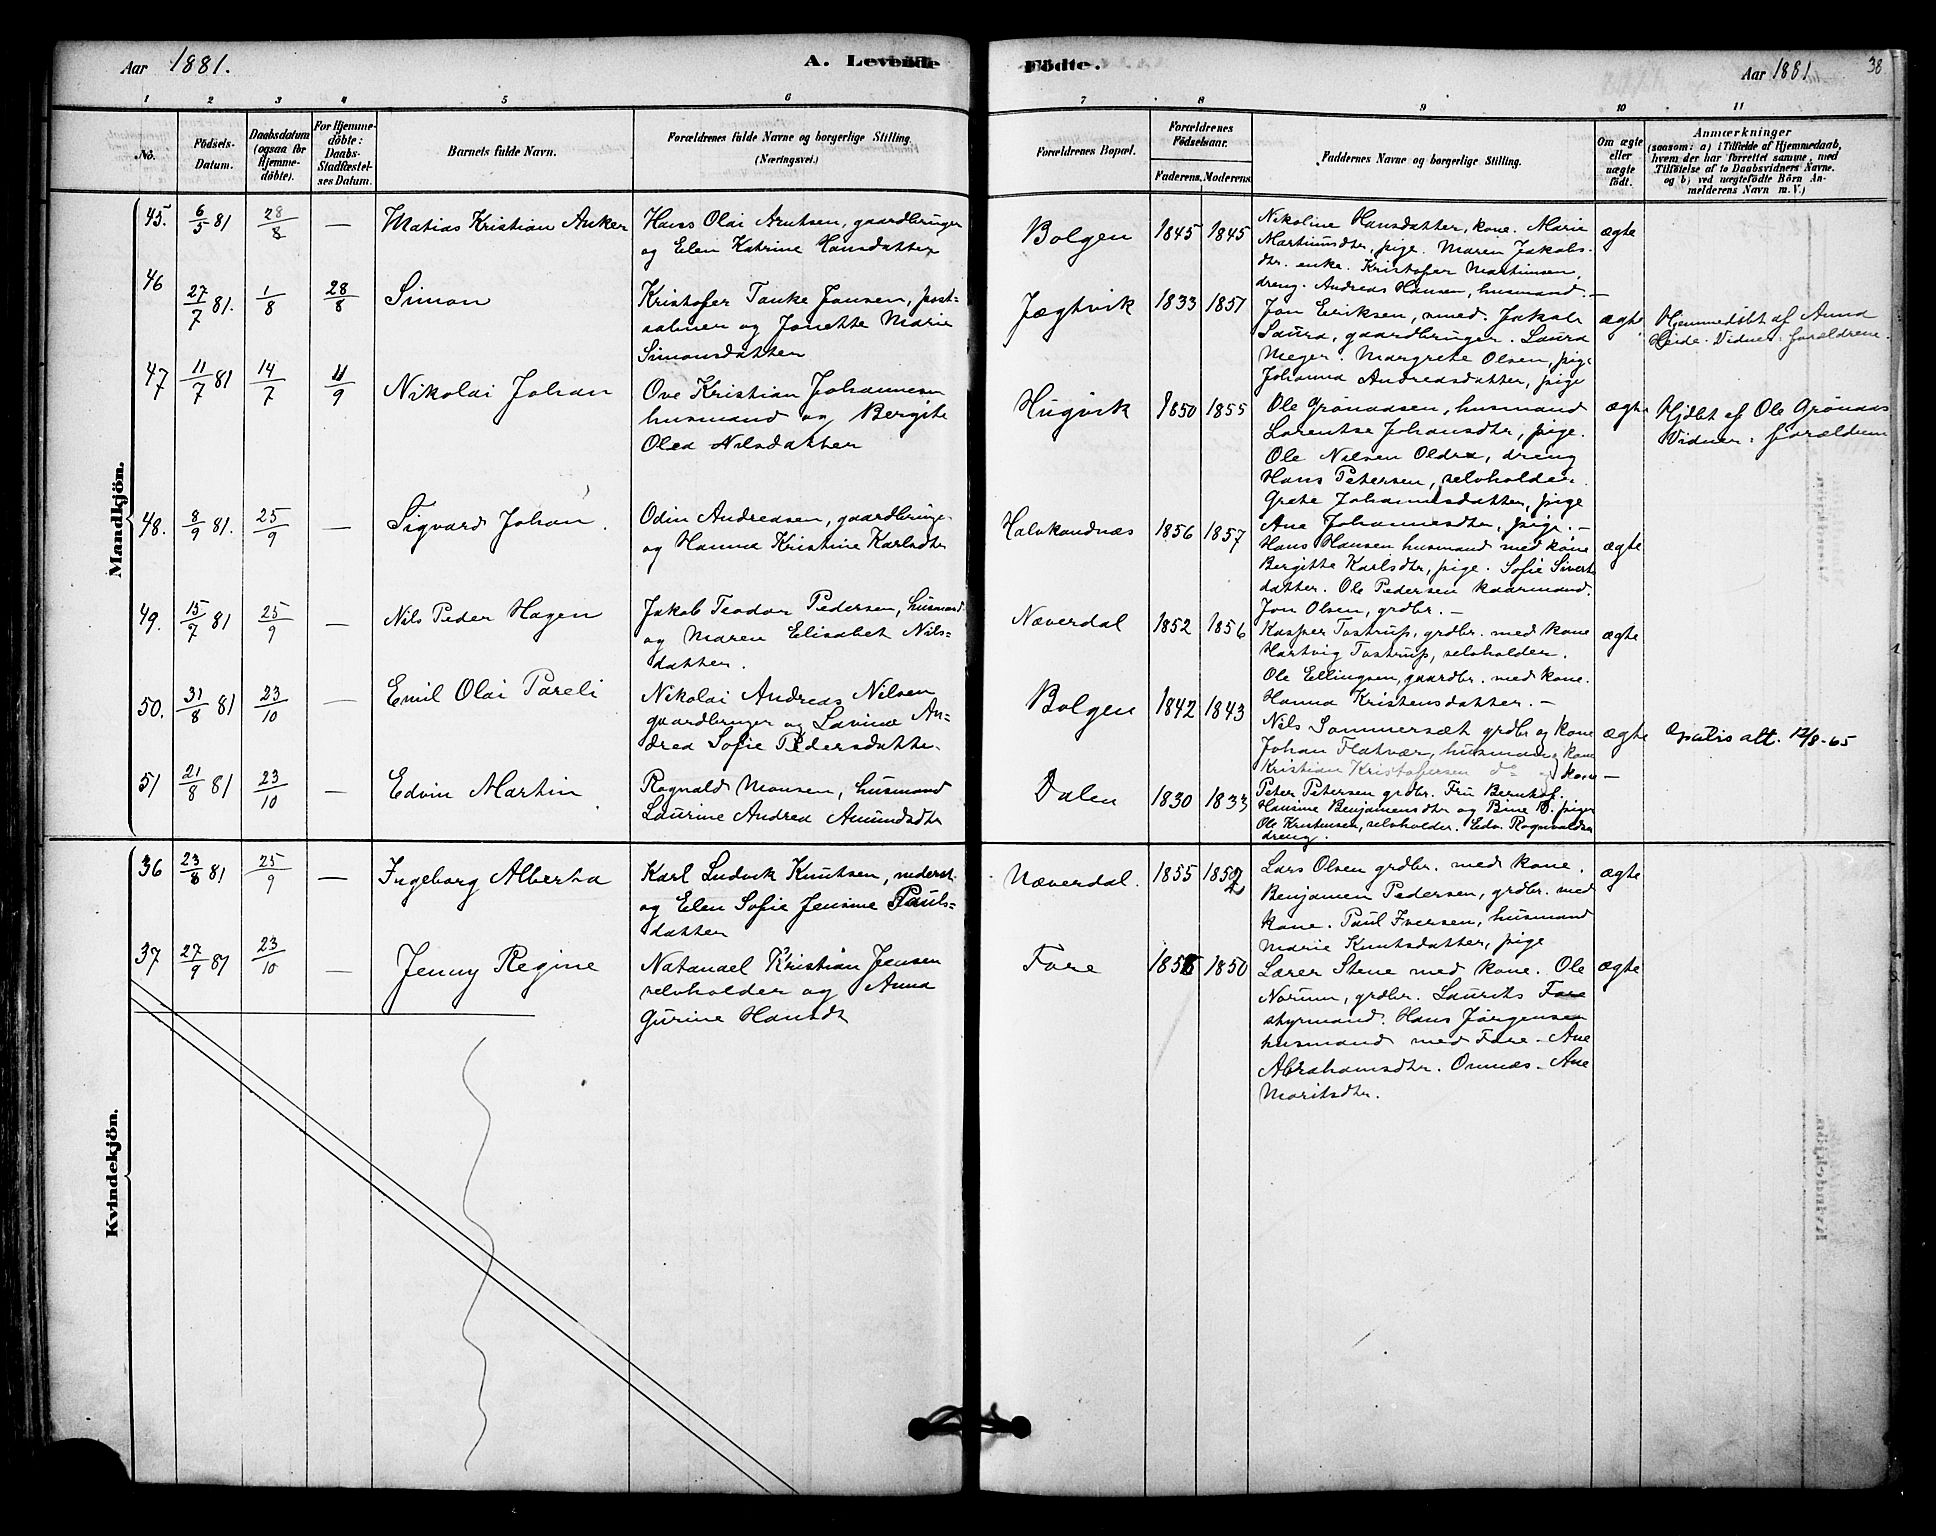 Aar 1881.
A. Levende
Födte.
Aar 1881
38
1 2 3 4 5 6 7 8 9 10 11
No.
Födsels-
Datum.
Daabsdatum
(ogsaa for
Hjemme-
döbte).
For Hjemme-
döbte:
Daabs-
Stadfæstel-
ses Datum.
Barnets fulde Navn.
Forældrenes fulde Navne og borgerlige Stilling.
(Næringsvei.)
Forældrenes Bopæl.
Forældrenes
Födselsaar.
Faderens. Moderens.
Faddernes Navne og borgerlige Stilling.
Om ægte
eller
uægte
födt.
Anmærkninger
(saasom: a) i Tilfælde af Hjemmedaab,
hvem der har forrettet samme, med
Tilföielse af to Daabsvidners Navne.
og b) ved uægtefödte Börn An-
melderens Navn m. V.)
Mandkjön.
45. 6/5 81 28/8 — Matias Kristian Anker
Hans Olai Arntsen, gaardbruger
og Elen Katrine Hansdatter
Bolgen 1845 1845
Nikoline Hansdatter, kone. Marie
Martinusdtr, pige. Maren Jakobs-
dtr. enke. Kristofer Martinsen,
dreng. Andreas Hansen, husmand. —
ægte
46 27/7 81. 1/8 28/8 Simon
Kristofer Tanke Jansen, post-
aabner og Jonette Marie
Simonsdatter
Jægtvik 1833 1851
Jon Eriksen, smed. Jakob
Laura, gaardbruger. Laura
Meyer. Margrete Olsen, pige
Johanna Andreasdatter, pige
ægte
Hjemmedøbt af Anna
Heide. Vidner: forældrene.
47 11/7 81 14/7 11/9 Nikolai Johan
Ove Kristian Johannesen
husmand og Bergite
Olea Nilsdatter
Hugvik 1850 1855
Ole Grønaasen, husmand
Lorentse Johansdtr, pige.
Ole Nilsen Oldra, dreng
Hans Petersen, selvholder.
Grete Johannesdatter, pige
ægte
Hjdbt af Ole Grønaas
Vidner: forældrene
48. 8/9 81. 25/9 — Sigvard Johan.
Odin Andreasen, gaardbruge-
og Hanna Kristine Karlsdtr
Halvkandnæs 1856 1857
Ane Johannesdtr, pige. —
Hans Hansen husmand med kone
Bergitte Karlsdtr, pige. Sofie Sivert
datter. Ole Pedersen kaarmand.
Jon Olsen, grdbr. —
ægte
49. 15/7 81 25/9 — Nils Peder Hagen
Jakob Teodor Pedersen, husmand
og Maren Elisabet Nils-
datter.
Næverdal 1852 1856
Kasper Tostrup, grdbr. med kone
Hartvig Tostrup, selvholder.
Ole Ellingsen, gaardbr. med kone.
Hanna Kristensdatter. —
ægte
50. 31/8 81 23/10 — Emil Olai Pareli
Nikolai Andreas Nilsen
gaardbruger og Lavine An-
drea Sofie Pedersdatter.
Bolgen 1842 1843
Nils Sommersæt grdbr og kone
Johan Flatvær, husmand og kone
Kristian Kristofersen do og kone —
ægte
Gratis alt. 12/8-65
51 21/8 81 23/10 — Edvin Martin
Rognald Monsen, husmand
Laurine Andrea Amundsdtr
Dalen 1830 1833
Peter Petersen grdbr. Fru Bernhof.
Hansine Benjamensdtr og Bine B. piger
Ole Kristensen, selvholder. Edv. Rognvaldsen
dreng.
Kvindekjön.
36 23/8 81 25/9 — Ingeborg Alberta
Karl Ludvik Knutsen, inderst
og Elen Sofie Jensine Pauls-
datter
Næverdal. 1855 1852
Lars Olsen grdbr. med kone.
Benjamen Pedersen, grdbr. med
kone. Paul Iversen, husmand
Marie Knutsdatter, pige
ægte
37 27/9 81 23/10 — Jenny Regine
Natanael Kristian Jensen
selvholder og Anna
Gurine Hansdt
Fore 1856 1850
Lærer Stene med kone. Ole
Norum, grdbr. Laurits Fore
styrmand. Hans Jørgensen
husmand med Fore. Ane
Abrahamsdtr. Ornnæs. Ane
Moritsdtr.
ægte